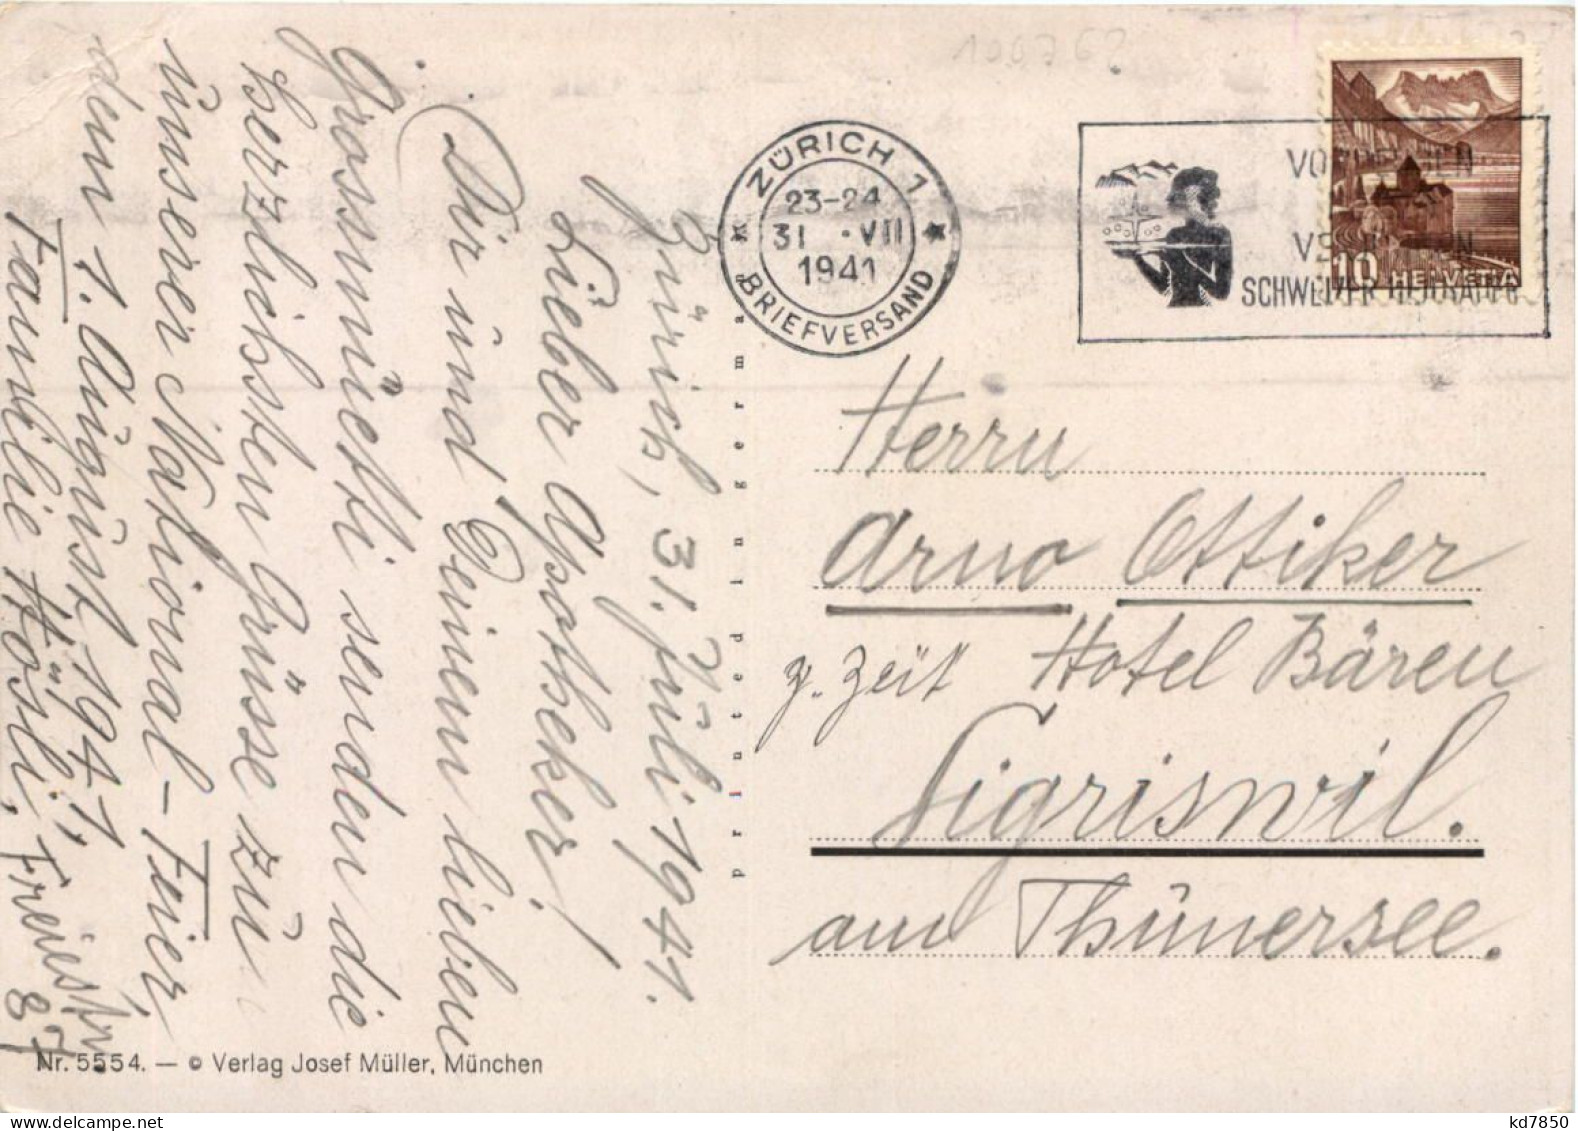 Zürich, 31. Juli 1941.
Lieber Apotheker!
Dir und Deinem lieben
Grossmuetti senden die
herzlichsten Grüsse zu
unserer National-Feier,
dem 1. August 1941,
Familie Hösli, Freiestr.
87
Nr. 5554. — © Verlag Josef Müller, München
printed in germany
ZÜRICH 1
23-24
31.VII
1941
BRIEFVERSAND
SCHWEIZER
10 HELVETIA
Herrn
Arno Ottiker
z. Zeit Hotel Bären
Sigriswil.
am Thunersee.
kd7850